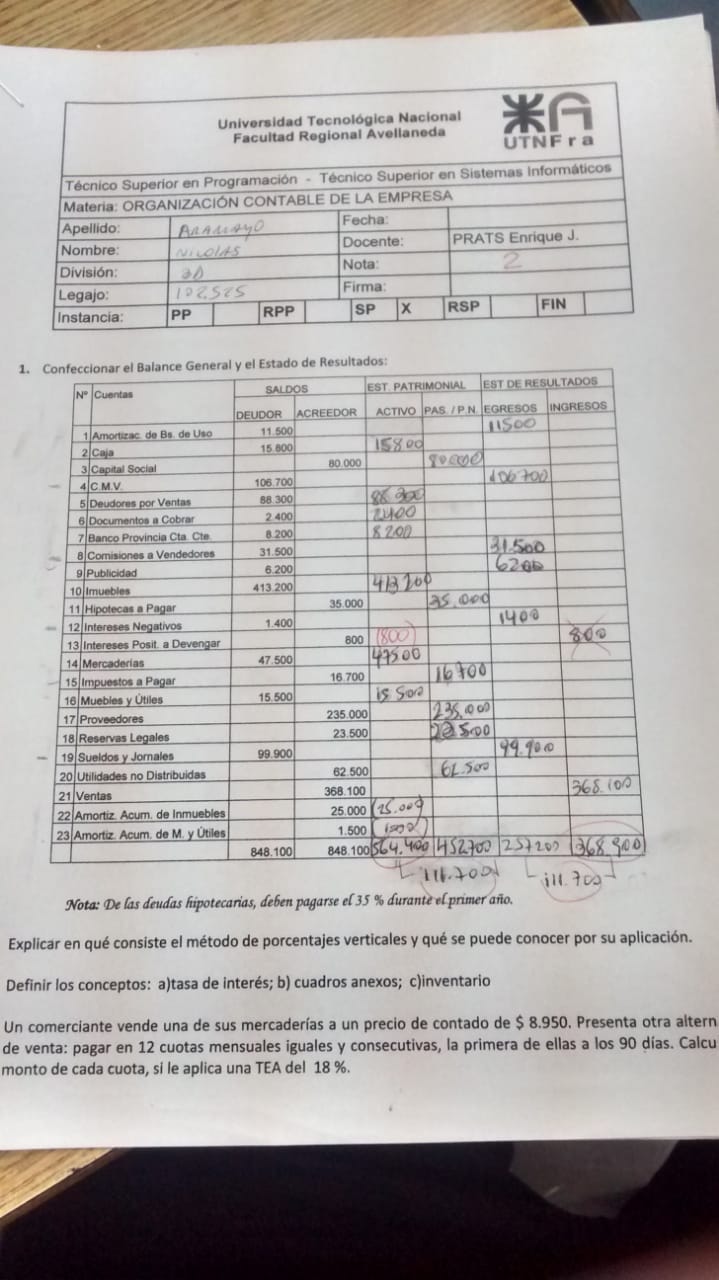 Universidad Tecnológica Nacional
Facultad Regional Avellaneda
UTNFra
Técnico Superior en Programación - Técnico Superior en Sistemas Informáticos
Materia: ORGANIZACIÓN CONTABLE DE LA EMPRESA
Apellido: ARAMAYO Fecha:
Nombre: NICOLAS Docente: PRATS Enrique J.
División: 3D Nota: 2
Legajo: 102.525 Firma:
Instancia: PP RPP SP X RSP FIN
1. Confeccionar el Balance General y el Estado de Resultados:
Nº Cuentas SALDOS EST. PATRIMONIAL EST DE RESULTADOS
DEUDOR ACREEDOR ACTIVO PAS. / P.N. EGRESOS INGRESOS
1 Amortizac. de Bs. de Uso 11.500 11500
2 Caja 15.800 15800
3 Capital Social 80.000 80000
4 C.M.V. 106.700 106700
5 Deudores por Ventas 88.300 88300
6 Documentos a Cobrar 2.400 2400
7 Banco Provincia Cta. Cte. 8.200 8200
8 Comisiones a Vendedores 31.500 31.500
9 Publicidad 6.200 6200
10 Imuebles 413.200 413200
11 Hipotecas a Pagar 35.000 35.000
12 Intereses Negativos 1.400 1400
13 Intereses Posit. a Devengar 800 (800) 800
14 Mercaderías 47.500 47500
15 Impuestos a Pagar 16.700 16700
16 Muebles y Útiles 15.500 15500
17 Proveedores 235.000 235.000
18 Reservas Legales 23.500
19 Sueldos y Jornales 99.900 99.900
20 Utilidades no Distribuidas 62.500 62.500
21 Ventas 368.100 368.100
22 Amortiz. Acum. de Inmuebles 25.000 (25.000)
23 Amortiz. Acum. de M. y Útiles 1.500 (1500)
848.100 848.100 564.400 452700 257200 368.900
111.700 111.700
Nota: De las deudas hipotecarias, deben pagarse el 35 % durante el primer año.
Explicar en qué consiste el método de porcentajes verticales y qué se puede conocer por su aplicación.
Definir los conceptos: a)tasa de interés; b) cuadros anexos; c)inventario
Un comerciante vende una de sus mercaderías a un precio de contado de $ 8.950. Presenta otra altern
de venta: pagar en 12 cuotas mensuales iguales y consecutivas, la primera de ellas a los 90 días. Calcu
monto de cada cuota, si le aplica una TEA del 18 %.